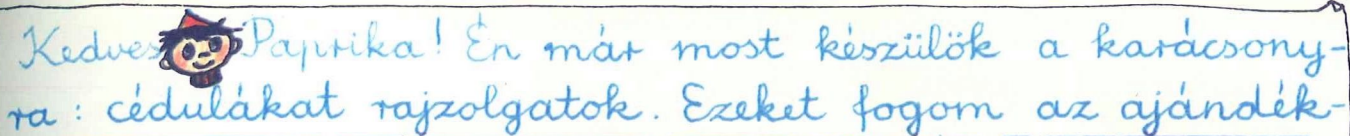 Kedves Paprika! Én már most készülök a karácsony-
ra: cédulákat rajzolgatok. Ezeket fogom az ajándék-